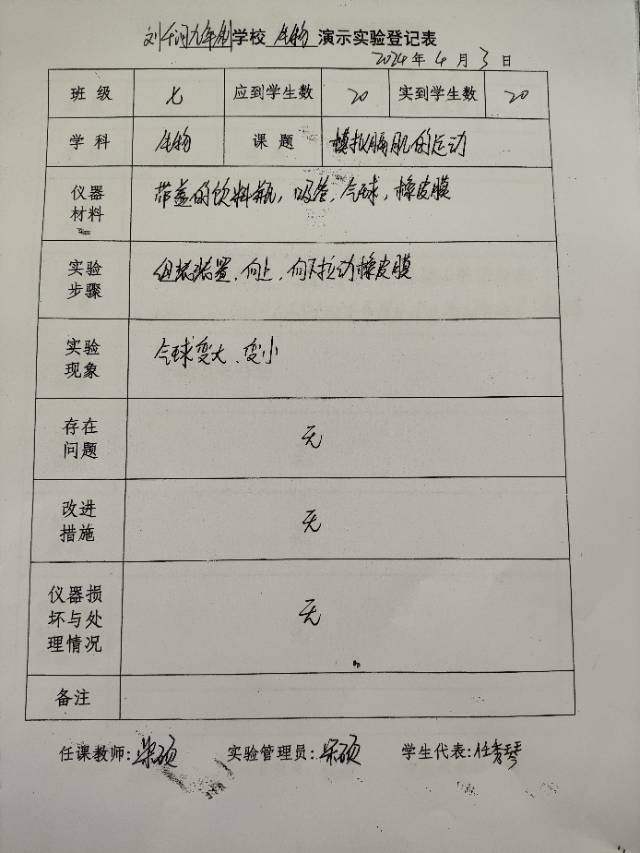 刘千润九年制学校 生物 演示实验登记表
2024年4月3日
班级 七 应到学生数 20 实到学生数 20
学科 生物 课题 模拟膈肌的运动
仪器材料 带盖的饮料瓶，吸管，气球，橡皮膜
实验步骤 组装装置、向上、向下拉动橡皮膜
实验现象 气球变大、变小
存在问题 无
改进措施 无
仪器损坏与处理情况 无
备注
任课教师: 梁硕 实验管理员: 梁硕 学生代表: 任秀琴